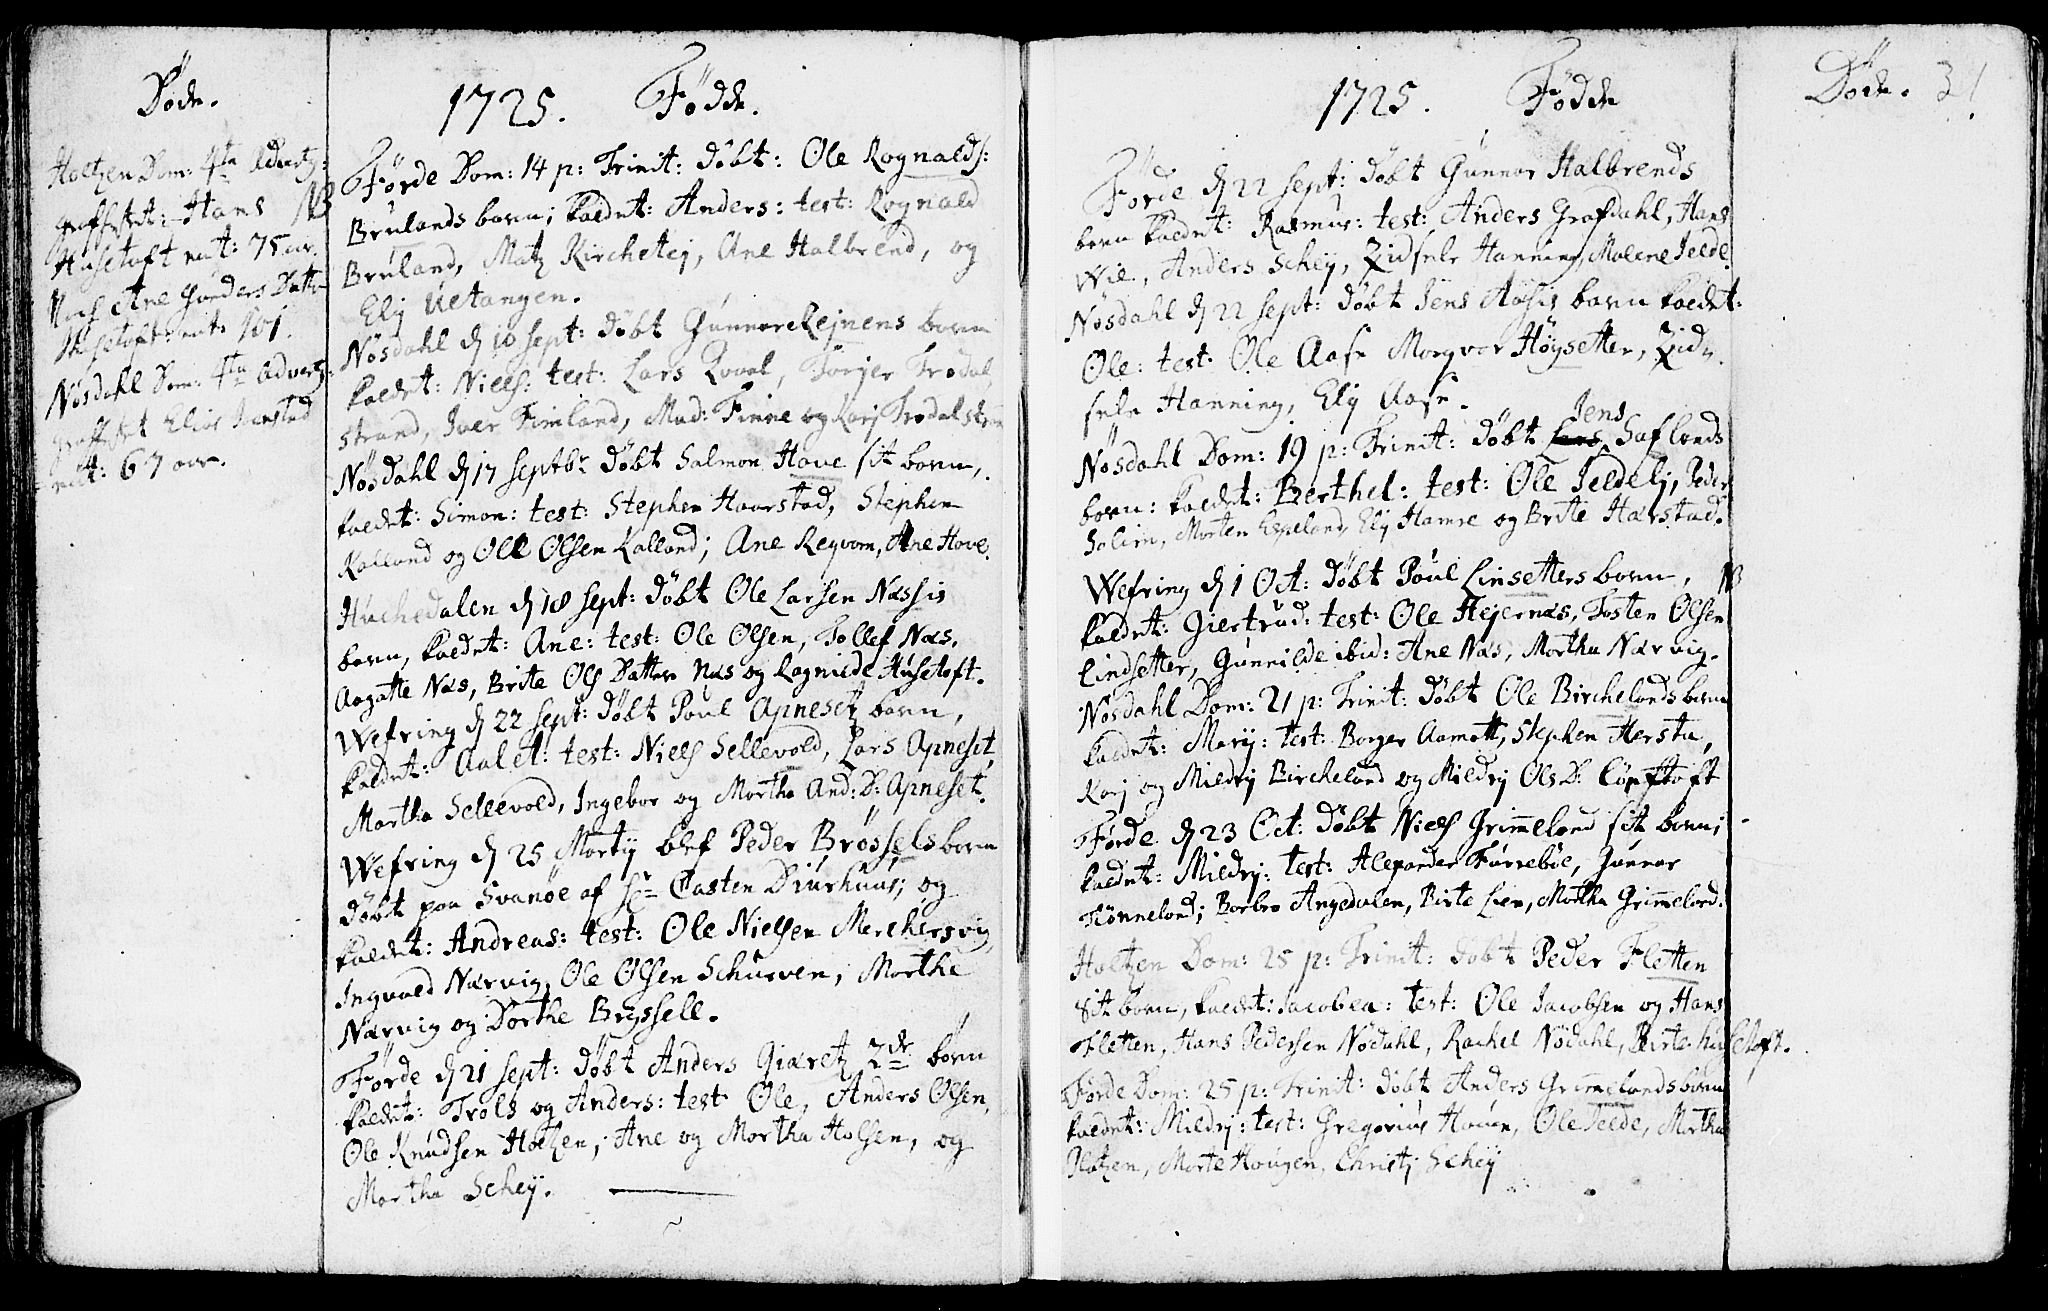 Døde.
Holtzen Dom: 4ta Advent:
graffæstet: Hans NB
Husetoft æt: 75 aar.
Ane Gunders Datter
Husetoft: æt: 101.
Nøsdahl Dom: 4ta Advent:
graffæstet Elias
æt: 67 aar.
1725. Fødde.
Førde Dom: 14 p: Trinit: døbt: Ole Rognalds:
Brulands barn; kaldet: Anders: test: Rognald
Bruland, Matz Kirchetej, Ane Halbrend, og
Elij Uetangen.
Nøsdahl d 10 Sept: døbt Gunnare Rejnens barn
kaldet: Niels: test: Lars Qvaal, Torger Trodal
strand, Iver Fimland, Mad: Finne og Karj Trodalstrnd
Nøsdahl d 17 Septbr døbt Salmon Hove sit barn,
kaldet: Simon: test: Stephen Haarstad, Stephen
Kalland og Ole Olsen Kalland; Ane Reqvam, Ane Hove.
Huchedalen d 18 Sept: døbt Ole Larsen Næssis
barn, kaldet: Ane: test: Ole Olsen, Tollef Næs,
Aagatte Næs, Brite Ols Datter Næs og Ragnilde Husetoft.
Wefring d 22 Sept: døbt Poul Apnesetz barn,
kaldet: Aalet: test: Niels Sellevold, Lars Apneset,
Martha Sellevold, Ingebor og Martha And: D: Apneset.
Wefring d 25 Martij blef Peder Brøssels barn
døbt paa Svanøe af Hr Casten Diurhuus; og
kaldet: Andreas: test: Ole Nielsen Merchersvig,
Ingvald Nærvig, Ole Olsen Schurven, Marthe
Nærvig og Dorthe Bryssell.
Førde d 21 Sept: døbt Anders Giæretz 2de børn
kaldet: Trols og Anders: test Ole, Anders Olsen,
Ole Knudsen Holtzen, Ane og Martha Holsen, og
Martha Scheij.
1725. Fødde
Førde d 22 Sept: døbt Gunnar Halbrends
barn kaldet: Rasmus: test: Anders Grafdahl, Hans
Wie, Anders Scheij, Zidsele Hanning, Malene Ielde.
Nøsdahl d 22 Sept: døbt Jens Aasis barn kaldet:
Ole: test: Ole Aase Margvar Høysetter, Zid-
sele Hanning, Elij Aase.
Jens
Nøsdahl Dom: 19 p: Trinit: døbt Lars Saslends
barn: kaldet: Berthel: test: Ole Ieldelj, Peder
Soliem, Morten Espeland, Elij Hamre og Brite Harstad.
Wefring d 1 Oct: døbt Poul Linsetters barn, NB
kaldet: Giertrud: test: Ole Hejernæs, Tosten Olsen
Lindsetter, Gunnilde ibid: Ane Næs, Martha Nærvig.
Nøsdahl Dom: 21 p: Trinit: døbt Ole Birchelands barn
kaldet: Marij: test: Borger Aamott, Stephen Hersta,
Karj og Mildrj Bircheland og Mildrj Ols D:
Førde d 23 Oct: døbt Niels Grimeland sit barn;
kaldet: Mildrj: test: Alexander Farreboe, Gunnar
Tiønneland; Barbro Angedalen, Birte Lien, Martha Grimeland.
Holtzen Dom: 25 p: Trinit: døbt Peder Fletten
sit barn, kaldet: Jacobea: test: Ole Jacobsen og Hans
Fletten, Hans Pedersen Nødahl, Rachel Nødahl, Birte Husetoft.
Førde Dom: 25 p: Trinit: døbt Anders Grimelands barn
kaldet: Mildrj: test: Gregorius Hauen, Ole Ielde, Martha
Holtzen, Marte Hougen, Christj Scheij
Døde. 31